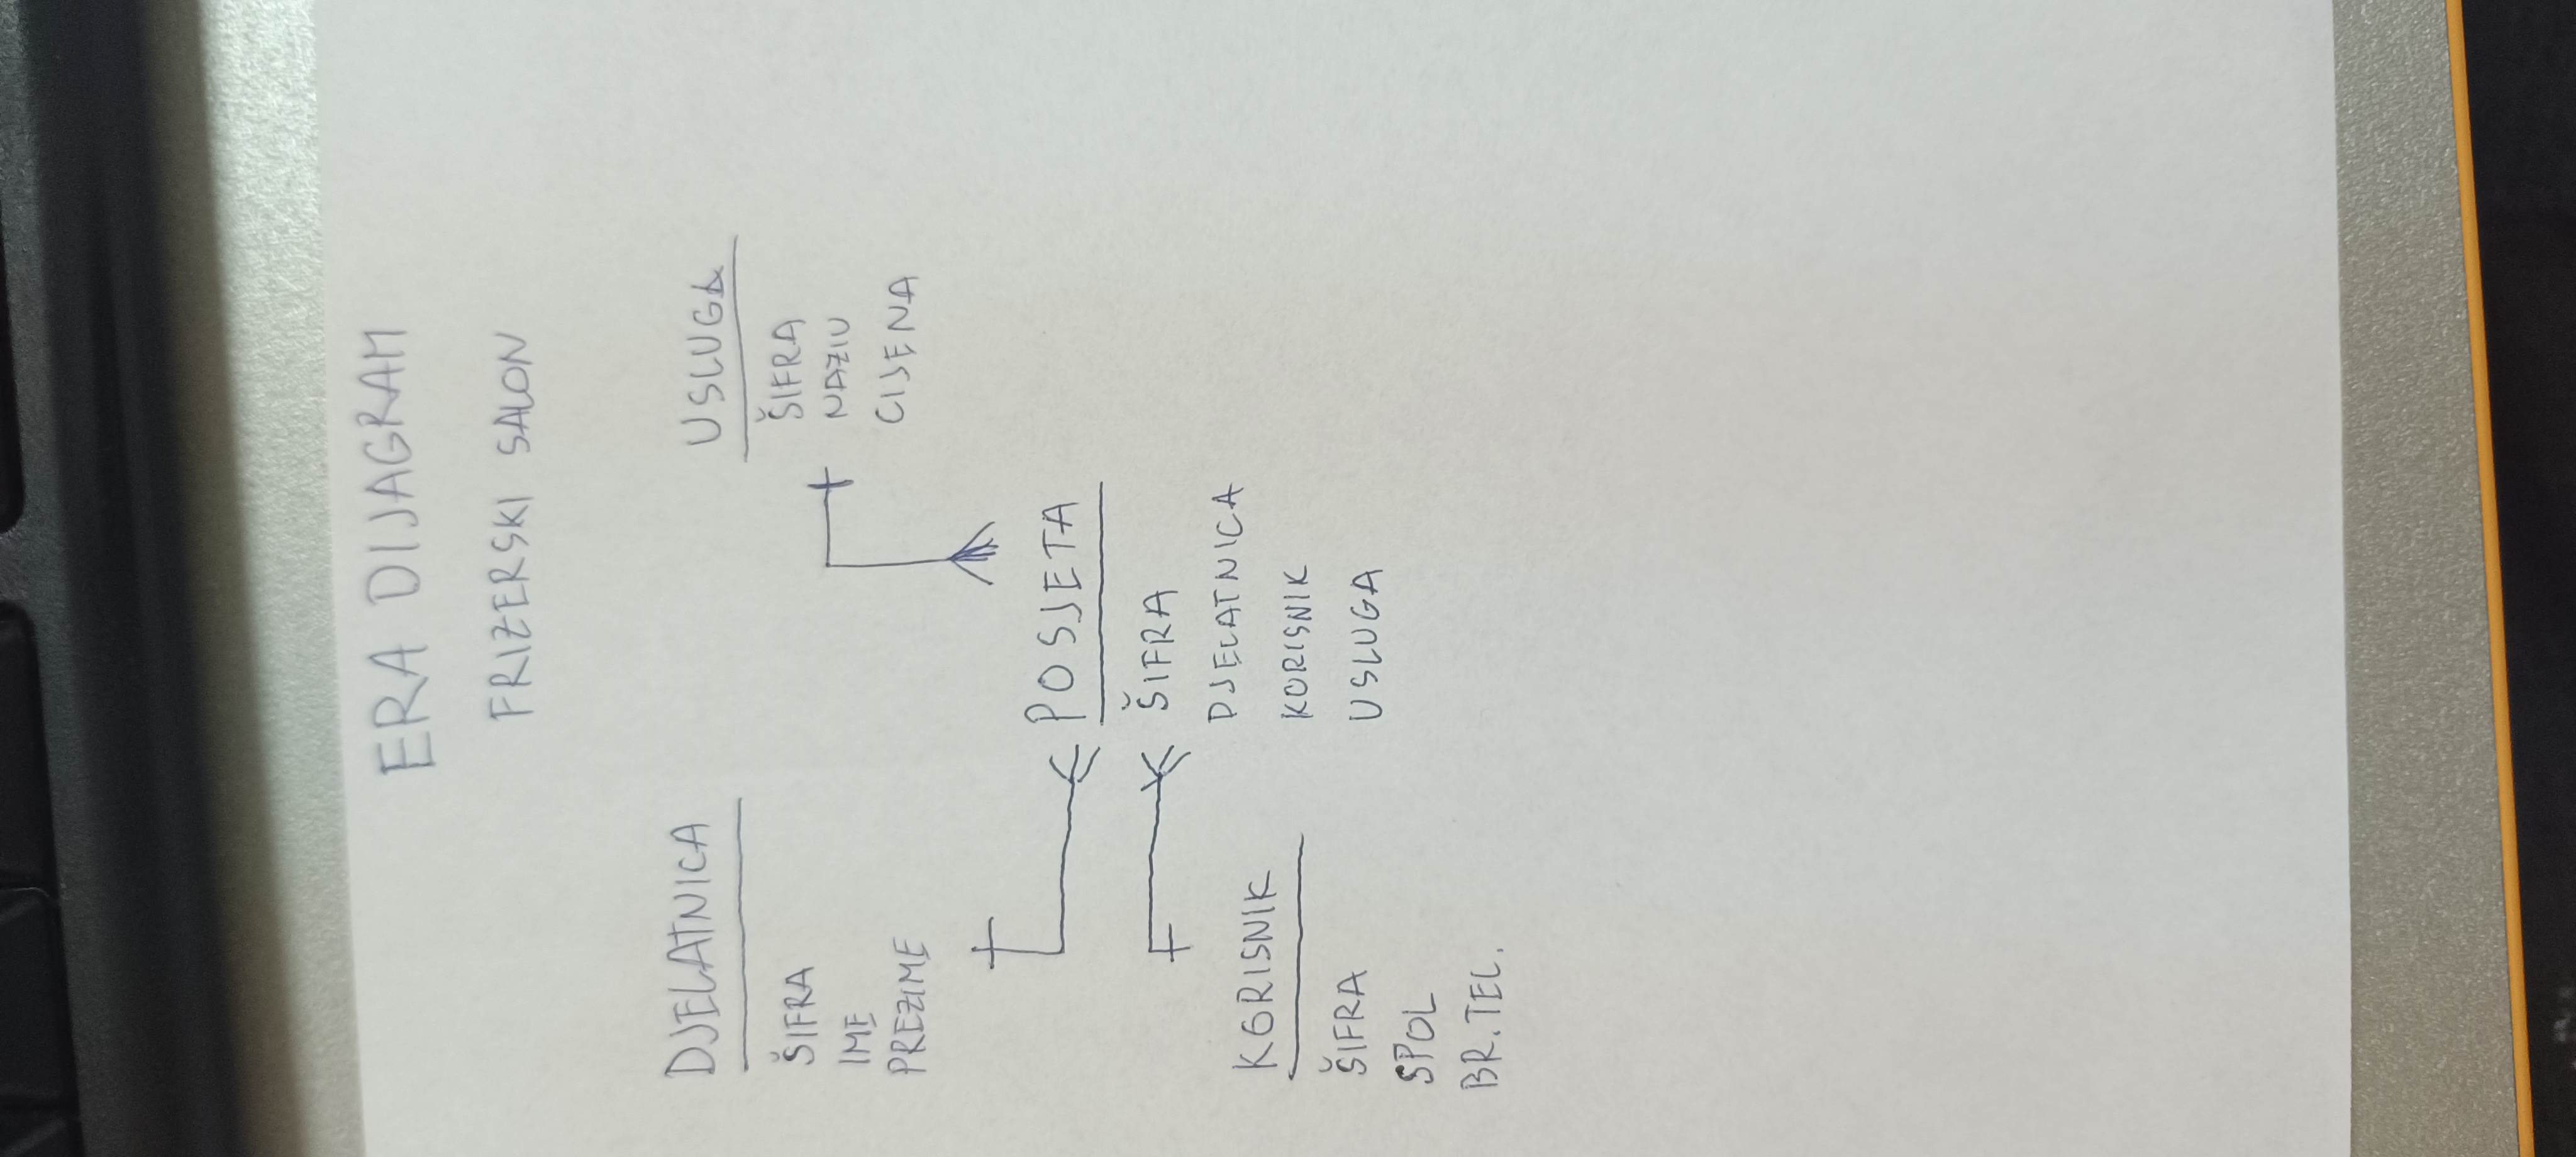 ERA DIJAGRAM
FRIZERSKI SALON
DJELATNICA
ŠIFRA
IME
PREZIME
USLUGA
ŠIFRA
NAZIV
CIJENA
POSJETA
ŠIFRA
DJELATNICA
KORISNIK
USLUGA
KORISNIK
ŠIFRA
SPOL
BR. TEL.